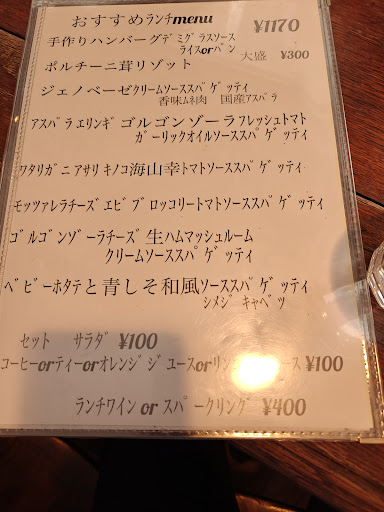 おすすめランチmenu ¥1170
手作りハンバーグデミグラスソース
ライスorパン 大盛 ¥300
ポルチーニ茸リゾット
ジェノベーゼクリームソーススパゲッティ
香味ムネ肉 国産アスパラ
アスパラエリンギゴルゴンゾーラフレッシュトマト
ガーリックオイルソーススパゲッティ
ワタリガニアサリキノコ海山幸トマトソーススパゲッティ
モッツァレラチーズエビブロッコリートマトソーススパゲッティ
ゴルゴンゾーラチーズ生ハムマッシュルーム
クリームソーススパゲッティ
ベビーホタテと青しそ和風ソーススパゲッティ
シメジキャベツ
セット サラダ ¥100
コーヒーorティーorオレンジジュースorリンゴジュース ¥100
ランチワイン or スパークリング ¥400